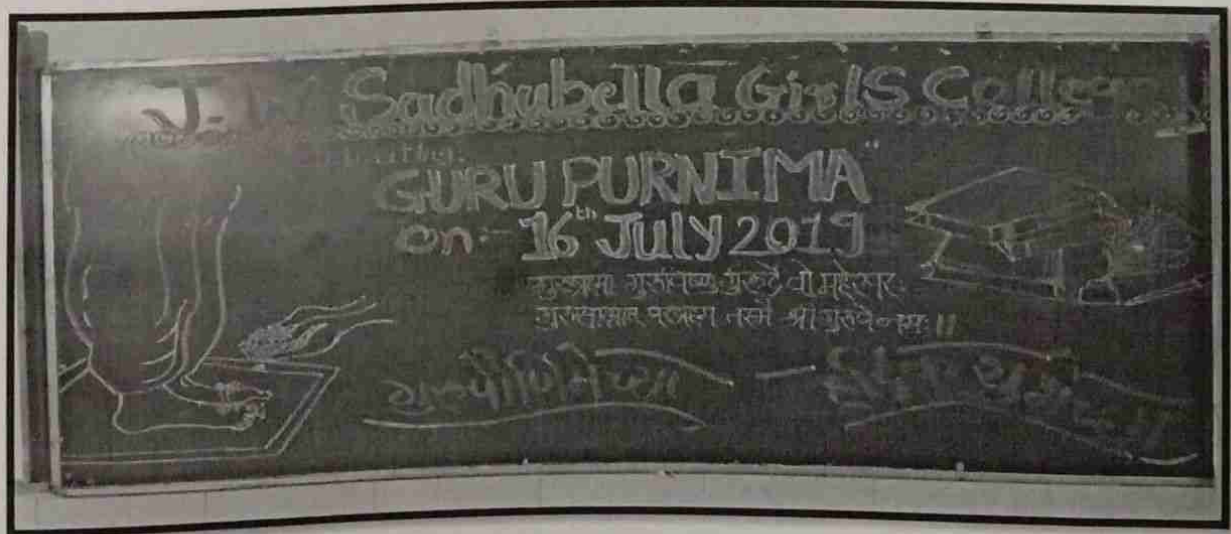 J. W. Sadhubella Girls College
GURU PURNIMA"
on:- 16th July 2019
गुरुब्रह्मा गुरुविष्णु गुरुर्देवो महेश्वरः
गुरुसाक्षात परब्रह्म तस्मै श्री गुरुवे नमः ॥
गुरुपूर्णिमा